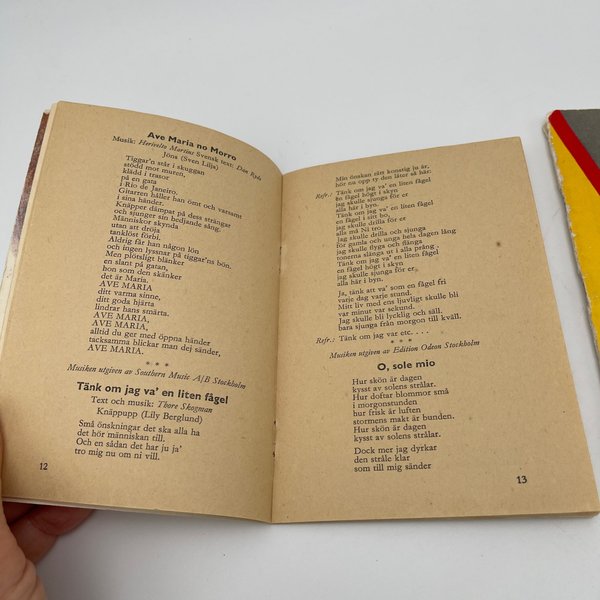 Ave Maria no Morro
Musik: Herivelto Martins Svensk text: Dan Ryds
Jöns (Sven Lilja)
Tiggar'n står i skuggan
stödd mot muren,
klädd i trasor
på en gata
i Rio de Janeiro.
Gitarren håller han ömt och varsamt
i sina händer.
Knäpper dämpat på dess strängar
och sjunger sin bedjande sång.
Människor skynda
utan att dröja
tanklöst förbi.
Aldrig får han någon lön
och ingen lyssnar på tiggar'ns bön.
Men plötsligt blänker
en slant på gatan,
hon som den skänker
det är Maria.
AVE MARIA
ditt varma sinne,
ditt goda hjärta
lindrar hans smärta.
AVE MARIA,
AVE MARIA,
alltid du ger med öppna händer
tacksamma blickar man dej sänder,
AVE MARIA.
* * *
Musiken utgiven av Southern Music A/B Stockholm
Tänk om jag va' en liten fågel
Text och musik: Thore Skogman
Knäppupp (Lily Berglund)
Små önskningar det ska alla ha
det hör människan till.
Och en sådan det har ju ja'
tro mig nu om ni vill.
12
Min önskan rätt konstig ju är,
hör nu opp ty den låter så här:
Refr.: Tänk om jag va' en liten fågel
En fågel högt i skyn
jag skulle sjunga för er
alla här i byn.
en fågel i sitt bo,
jag skulle drilla för er
alla må Ni tro.
Jag skulle drilla och sjunga
för gamla och unga hela dagen lång
jag skulle flyga och fånga
tonerna slänga ut i alla prång.
Tänk om jag va' en liten fågel
en fågel högt i skyn
jag skulle sjunga för er
alla här i byn.
Ja, tänk att va' som en fågel fri
varje dag varje stund.
Mitt liv med ens ljuvligt skulle bli
var minut var sekund.
Jag skulle bli lycklig och säll.
bara sjunga från morgon till kväll.
Refr.: Tänk om jag var etc. . . .
* * *
Musiken utgiven av Edition Odeon Stockholm
O, sole mio
Hur skön är dagen
kysst av solens strålar.
Hur doftar blommor små
i morgonstunden
hur frisk är luften
stormens makt är bunden.
Hur skön är dagen
kysst av solens strålar.
Dock mer jag dyrkar
den stråle klar
som till mig sänder
13